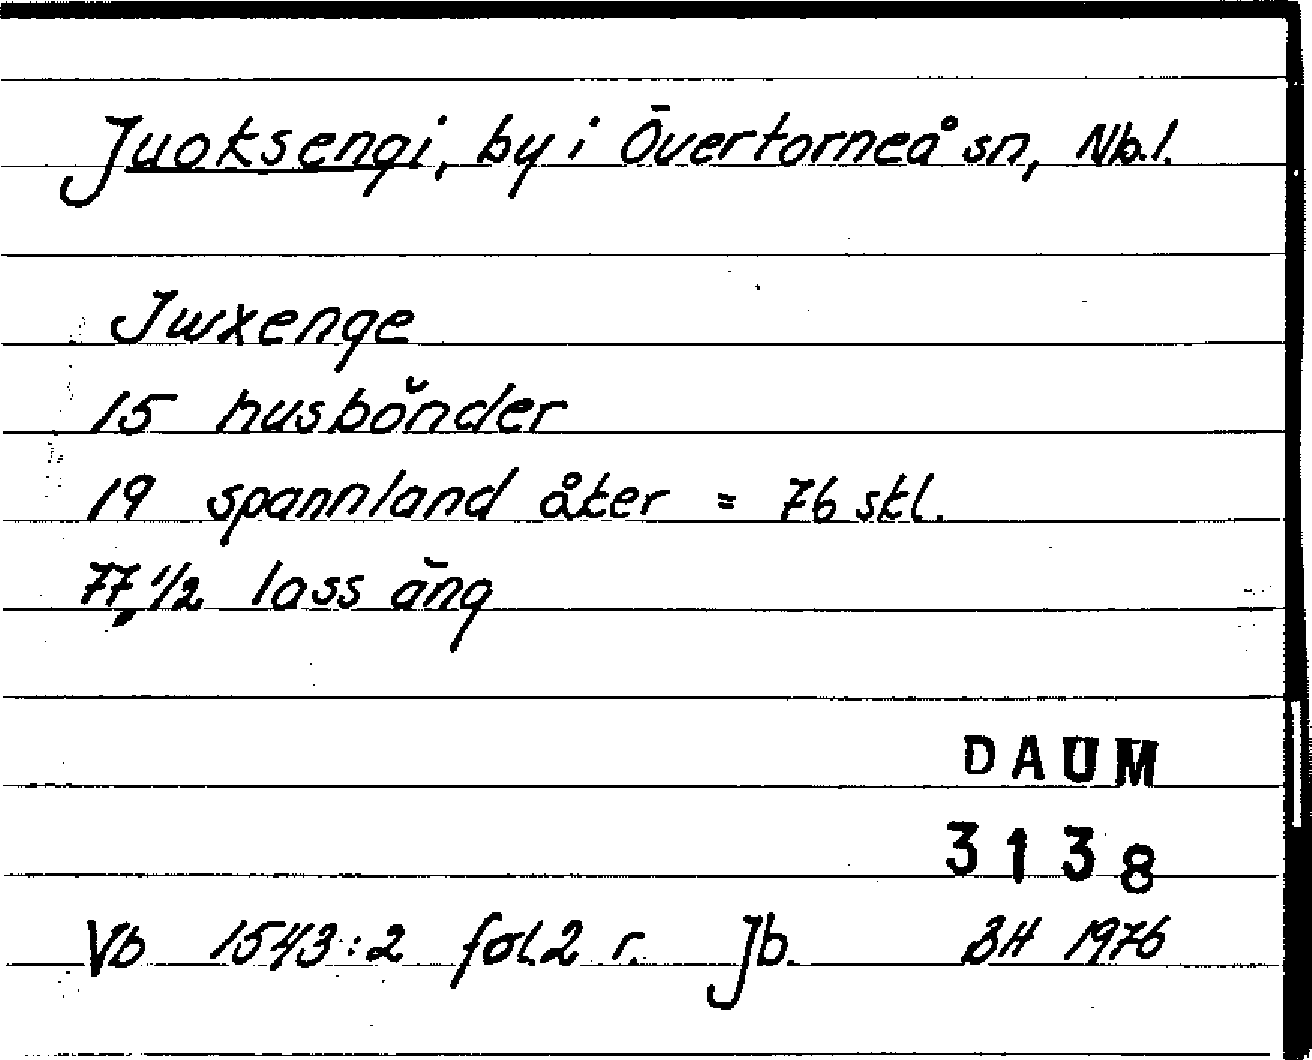 Juoksengi, by i Övertorneå sn, Nb.l.
Jwxenge
15 husbönder
19 spannland åker = 76 skl.
77 1/2 lass äng
DAUM
3138
Vb 1543:2 fol.2 r. Jb. BH 1976